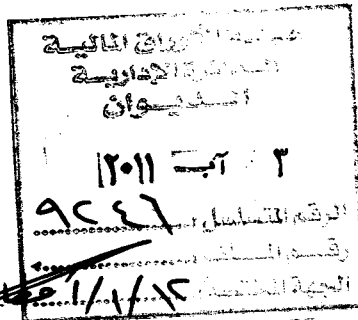 هيئة الأوراق المالية
الدائرة الإدارية
الديوان
٣ آب ٢٠١١
الرقم المتسلسل ٩٢٤٦
رقم الملف
الجهة المختصة ١/١/١٢